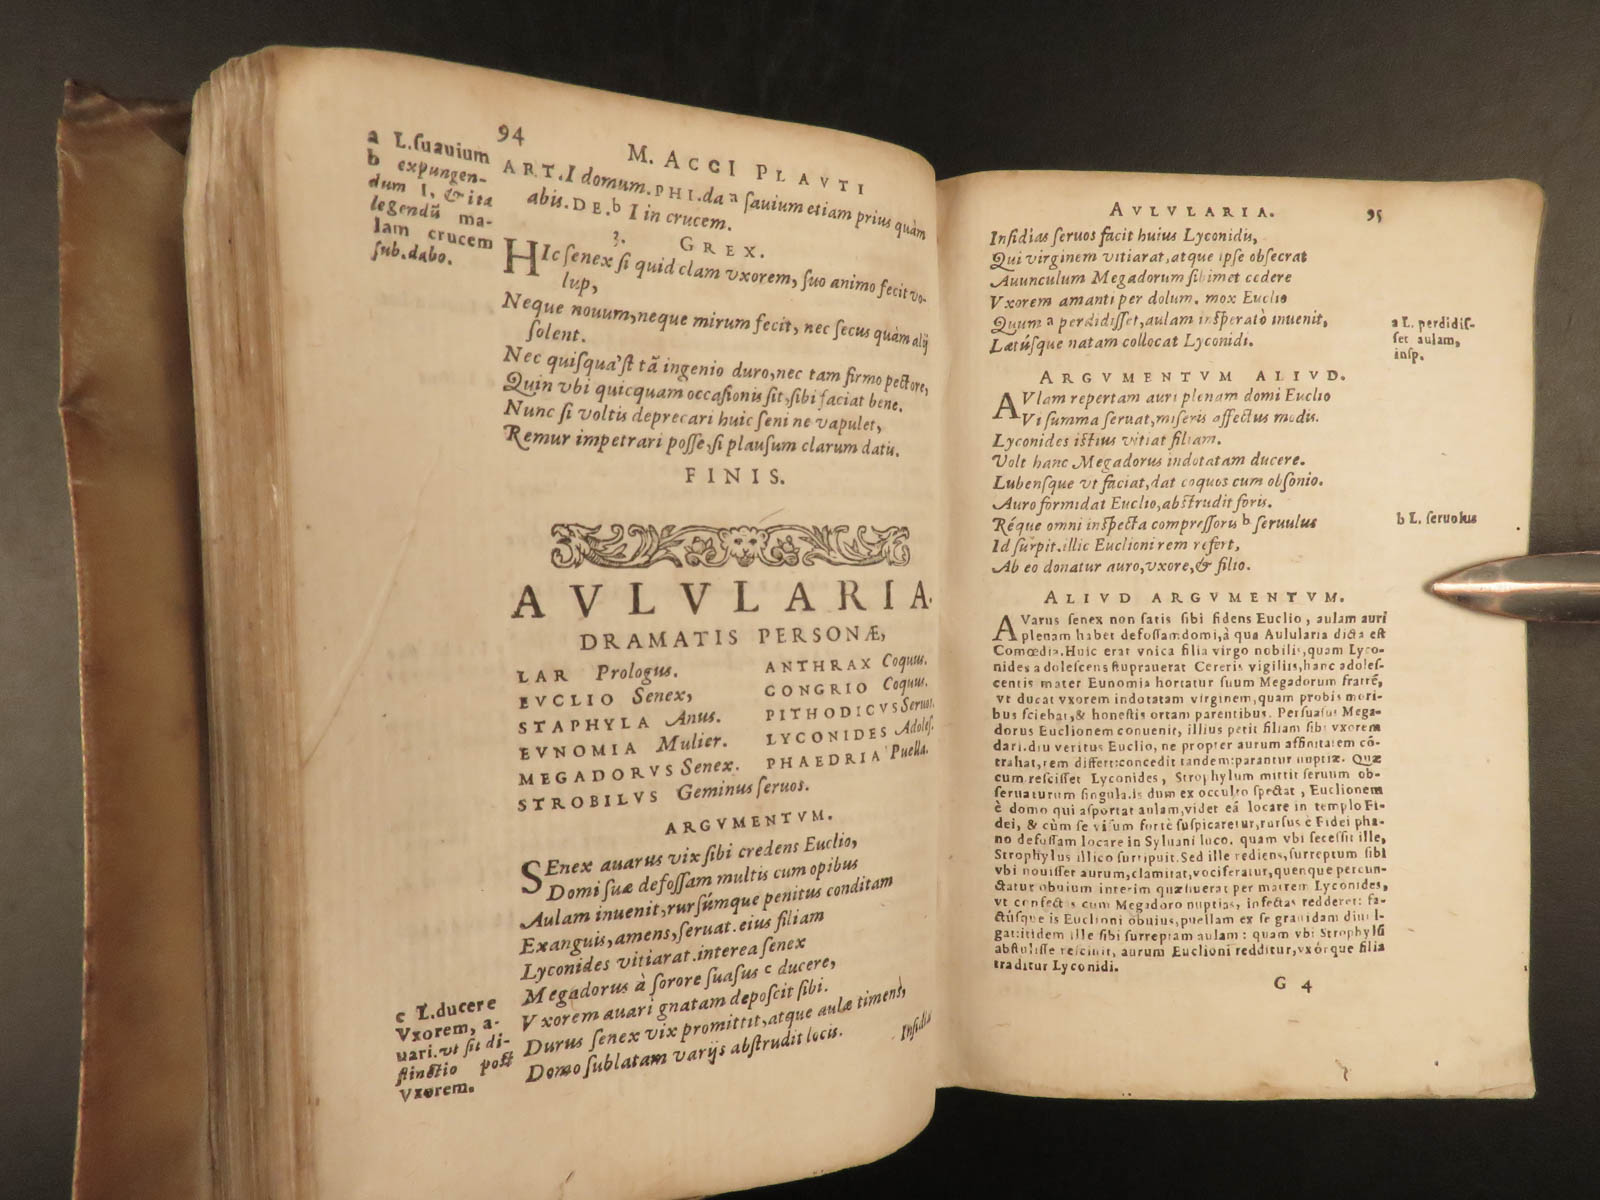 94
M. ACCI PLAVTI
a L.ſuauium
b expungen-
dum I, & ita
legendũ ma-
lam crucem
ſub.dabo.
ART. I domum. PHI. da ᵃ ſauium etiam prius quàm
abis. DE. ᵇ I in crucem.
GREX.
HIc ſenex ſi quid clam vxorem, ſuo animo fecit vo-
lup,
Neque nouum, neque mirum fecit, nec ſecus quàm alij
ſolent.
Nec quiſqua'ſt tã ingenio duro, nec tam firmo pectore,
Quin vbi quicquam occaſionis ſit, ſibi faciat bene.
Nunc ſi voltis deprecari huic ſeni ne vapulet,
Remur impetrari poſſe, ſi plauſum clarum datis.
FINIS.
AVLVLARIA.
DRAMATIS PERSONÆ,
LAR Prologus.
EVCLIO Senex,
STAPHYLA Anus.
EVNOMIA Mulier.
MEGADORVS Senex.
STROBILVS Geminus ſeruos.
ANTHRAX Coquus.
CONGRIO Coquus.
PITHODICVS Seruus.
LYCONIDES Adoleſ.
PHAEDRIA Puella.
ARGVMENTVM.
SEnex auarus vix ſibi credens Euclio,
Domi ſuæ defoſſam multis cum opibus
Aulam inuenit, rurſúmque penitus conditam
Exanguis, amens, ſeruat. eius filiam
Lyconides vitiarat. interea ſenex
Megadorus à ſorore ſuaſus ᶜ ducere,
Vxorem auari gnatam depoſcit ſibi.
Durus ſenex vix promittit, atque aulæ timens,
Domo ſublatam varijs abſtrudit locis.
Inſidia
c L.ducere
Vxorem, a-
uari. vt ſit di-
ſtinctio poſt
Vxorem.
AVLVLARIA.
95
Inſidias ſeruos facit huius Lyconidis,
Qui virginem vitiarat, atque ipſe obſecrat
Auunculum Megadorum ſibimet cedere
Vxorem amanti per dolum. mox Euclio
Quum ᵃ perdidiſſet, aulam inſperatò inuenit,
Lætúſque natam collocat Lyconidi.
a L. perdidiſ-
ſet aulam,
inſp.
ARGVMENTVM ALIVD.
AVlam repertam auri plenam domi Euclio
Vi ſumma ſeruat, miſeris affectus modis.
Lyconides iſtius vitiat filiam.
Volt hanc Megadorus indotatam ducere.
Lubenſque vt faciat, dat coquos cum obſonio.
Auro formidat Euclio, abſtrudit foris.
Réque omni inſpecta compreſſoris ᵇ ſeruulus
Id ſurpit. illic Euclioni rem refert,
Ab eo donatur auro, vxore, & filio.
b L. ſeruolus
ALIVD ARGVMENTVM.
AVarus ſenex non ſatis ſibi fidens Euclio, aulam auri
plenam habet defoſſam domi, à qua Aulularia dicta eſt
Comœdia. Huic erat vnica filia virgo nobilis, quam Lyco-
nides adoleſcens ſtuprauerat Cereris vigiliis, hanc adoleſ-
centis mater Eunomia hortatur ſuum Megadorum fratrẽ,
vt ducat vxorem indotatam virginem, quam probis mori-
bus ſciebat, & honeſtis ortam parentibus. Perſuaſus Mega-
dorus Euclionem conuenit, illius petit filiam ſibi vxorem
dari. diu veritus Euclio, ne propter aurum affinitatem cõ-
trahat, rem differt: concedit tandem: parantur nuptiæ. Quæ
cum reſciſſet Lyconides, Strophylum mittit ſeruum ob-
ſeruaturum ſingula. is dum ex occulto ſpectat, Euclionem
è domo qui aſportat aulam, videt eã locare in templo Fi-
dei, & cùm ſe viſum fortè ſuſpicaretur, rurſus è Fidei pha-
no defoſſam locare in Syluani luco. quam vbi ſeceſſit ille,
Strophylus illico ſurripuit. Sed ille rediens, ſurreptum ſibi
vbi nouiſſet aurum, clamitat, vociferatur, quenque percun-
ctatur obuium interim quæſiuerat per matrem Lyconides,
vt confectas cum Megadoro nuptias, infectas redderet: fa-
ctúſque is Euclioni obuius, puellam ex ſe grauidam diuul-
gat: itidem ille ſibi ſurreptam aulam: quam vbi Strophylũ
abſtuliſſe reſciuit, aurum Euclioni redditur, vxórque filia
traditur Lyconidi.
G 4